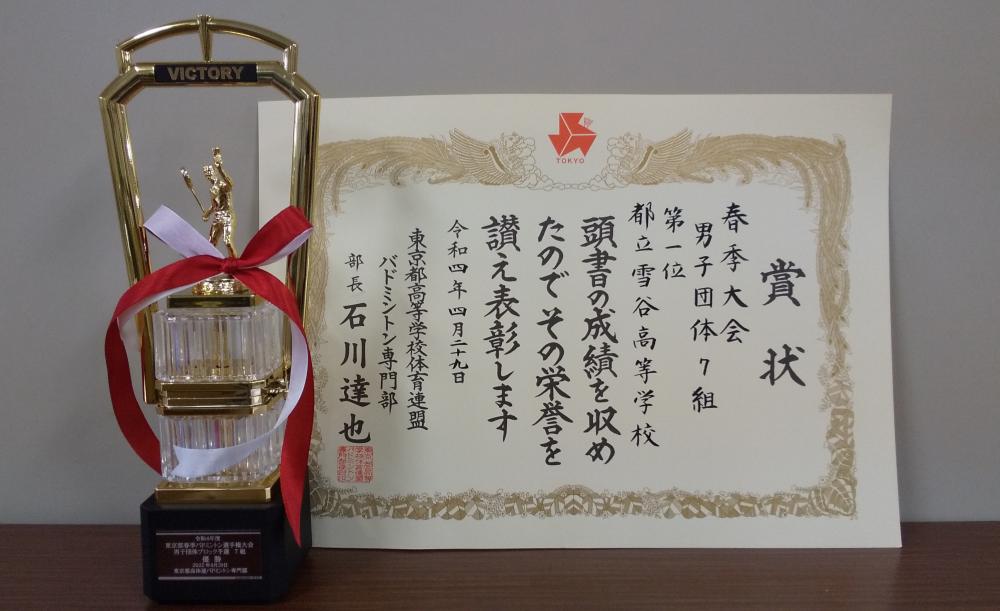 VICTORY
TOKYO
賞状
春季大会
男子団体7組
第一位
都立雪谷高等学校
頭書の成績を収め
たのでその栄誉を
讃え表彰します
令和四年四月二十九日
東京都高等学校体育連盟
バドミントン専門部
部長 石川達也
令和4年度
東京都春季バドミントン選手権大会
男子団体ブロック予選 7組
優勝
2022年4月29日
東京都高体連バドミントン専門部